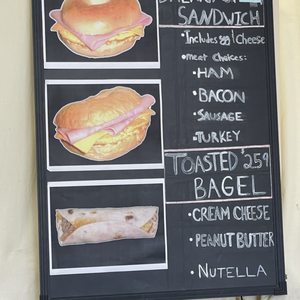 SANDWICH
•Includes egg & Cheese
•meat Choices:
•HAM
•BACON
•Sausage
•TURKEY
TOASTED $2.59
BAGEL
•CREAM CHEESE
•PEANUT BUTTER
•NUTELLA